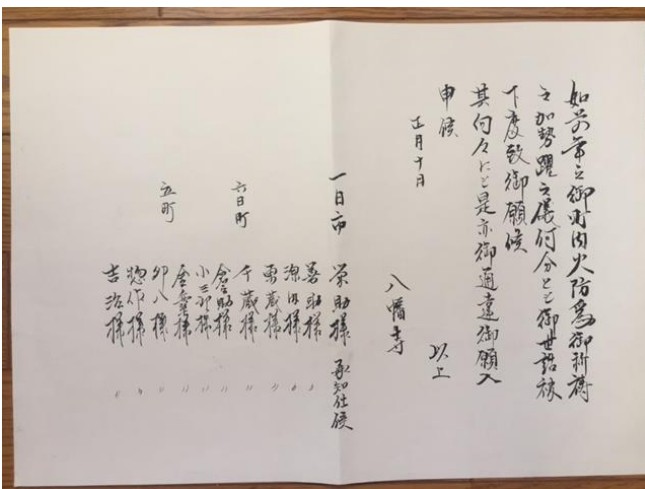 如前年之御町内火防為御祈祷
之加勢躍之儀何分とも御世話被
下度致御願候
其向々にも是亦御通達御願入
申候 以上
正月十日
八幡寺
一日市 栄助様 承知仕候
善助様 〃
源内様 〃
栗蔵様 〃
六日町 千蔵様 〃
倉助様 〃
小三郎様 〃
五町 卯八様 〃
惣作様 〃
吉治様 〃